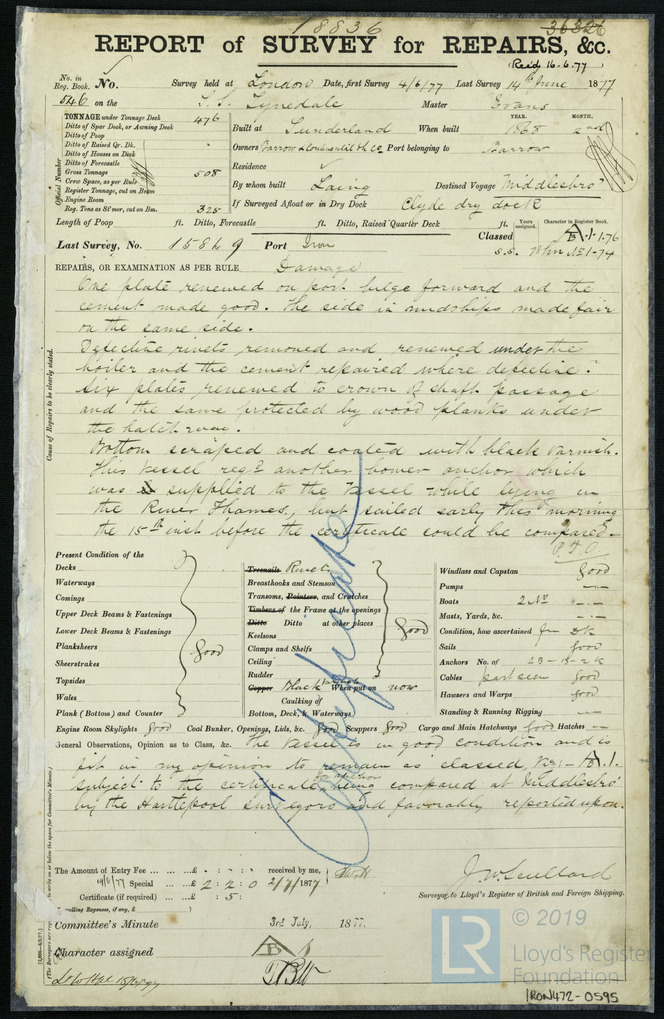 18836
36326
REPORT of SURVEY for REPAIRS, &c.
Recd 16.6.77
No. in Reg. Book. No. Survey held at London Date, first Survey 4/6/77 Last Survey 14th June 1877
546 on the S.S. Lynedale Master Evans
TONNAGE under Tonnage Deck 476
Ditto of Spar Deck, or Awning Deck
Ditto of Poop
Ditto of Raised Qr. Dk.
Ditto of Houses on Deck
Ditto of Forecastle
Gross Tonnage 508
Crew Space, as per Rule
Register Tonnage, cut on Beam
Engine Room
Reg. Tons as St'mer, cut on Bm. 325
Official Number
YEAR. MONTH.
Built at Sunderland When built 1868 2 mo
Owners Port belonging to Jarrow
Residence
By whom built Laing Destined Voyage Middlesbro'
If Surveyed Afloat or in Dry Dock Clyde dry dock
Length of Poop ft. Ditto, Forecastle ft. Ditto, Raised Quarter Deck ft.
Years assigned. Character in Register Book.
Last Survey, No. 15849 Port Iron Classed A 1-1-76
S.S. No 1-74
REPAIRS, OR EXAMINATION AS PER RULE Damage
One plate renewed on port bilge forward and the
cement made good. The side in midships made fair
on the same side.
Defective rivets removed and renewed under the
boiler and the cement repaired where defective.
Six plates renewed to crown of shaft passage
and the same protected by wood planks under
the hatchway.
Bottom scraped and coated with black varnish.
This vessel reqd another bower anchor which
was supplied to the vessel while lying in
the River Thames, but sailed early this morning
the 15th inst before the certificate could be compared.
P.T.O.
Cause of Repairs to be clearly stated.
Present Condition of the
Decks
Waterways
Comings
Upper Deck Beams & Fastenings
Lower Deck Beams & Fastenings
Planksheers
Sheerstrakes
Topsides
Wales
Plank (Bottom) and Counter
Good
Treenails Rivets
Breasthooks and Stemson
Transoms, Pointers, and Crutches
Timbers of the Frame at the openings
Ditto Ditto at other places
Keelsons
Clamps and Shelfs
Ceiling
Rudder
Good
Copper Black Varnish When put on now
Caulking of
Bottom, Deck, & Waterways
Windlass and Capstan Good
Pumps
Boats 2 No
Masts, Yards, &c.
Condition, how ascertained fm Dk
Sails Good
Anchors No. of 2B-1S-2K
Cables part seen Good
Hawsers and Warps Good
Standing & Running Rigging
Engine Room Skylights Good Coal Bunker, Openings, Lids, &c. Good Scuppers Good Cargo and Main Hatchways Good Hatches
Certificate
General Observations, Opinion as to Class, &c. The vessel is in good condition and is
fit in my opinion to remain as classed, viz:- A.1.
subject to the certificate for anchor being compared at Middlesbro'
by the Hartlepool surveyors and favorably reported upon.
The Amount of Entry Fee £ : : received by me,
Special £ 2 : 2 : 0 2/7/1877
Certificate (if required) : 5 :
(Travelling Expenses, if any, £ )
J W Scullard
Surveyor to Lloyd's Register of British and Foreign Shipping.
Committee's Minute 3rd July, 1877.
Character assigned A 1
TBW
LR
© 2019
Lloyd's Register
Foundation
IRON472-0595